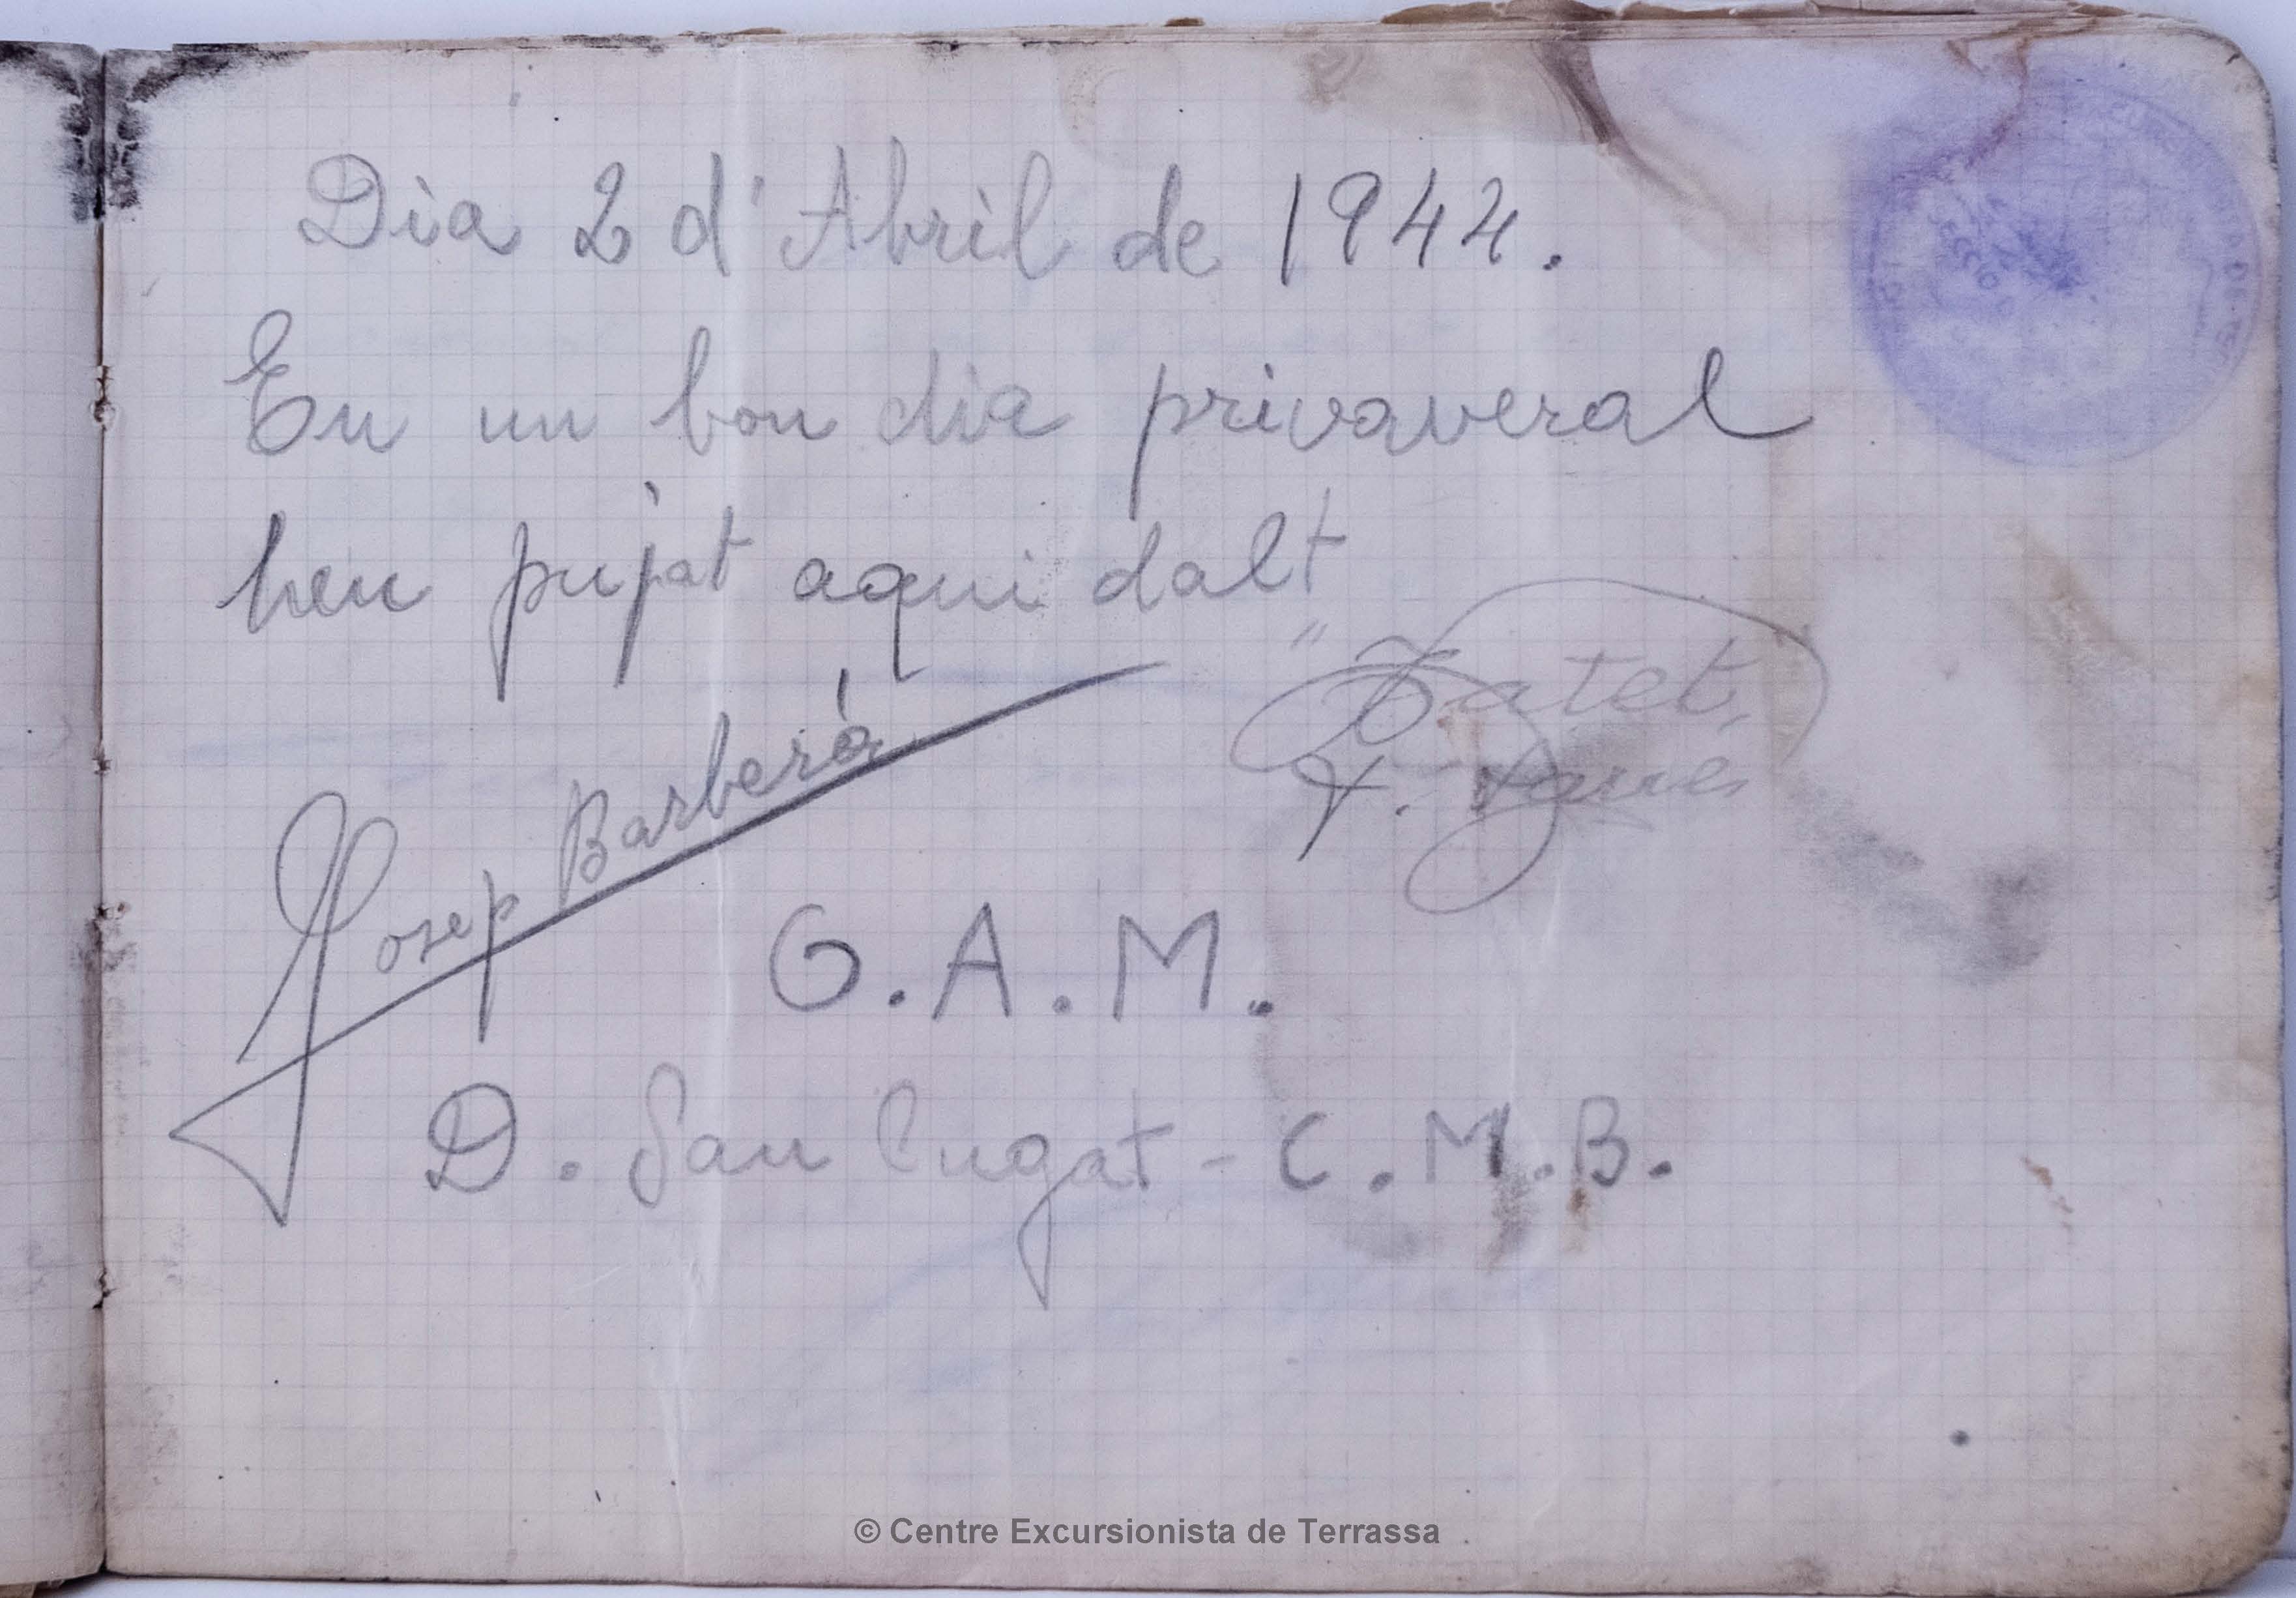 Dia 2 d'Abril de 1944.
En un bon dia privaveral
heu pujat aqui dalt
Josep Barberá
G.A.M.
D. San Cugat - C.M.B.
© Centre Excursionista de Terrassa